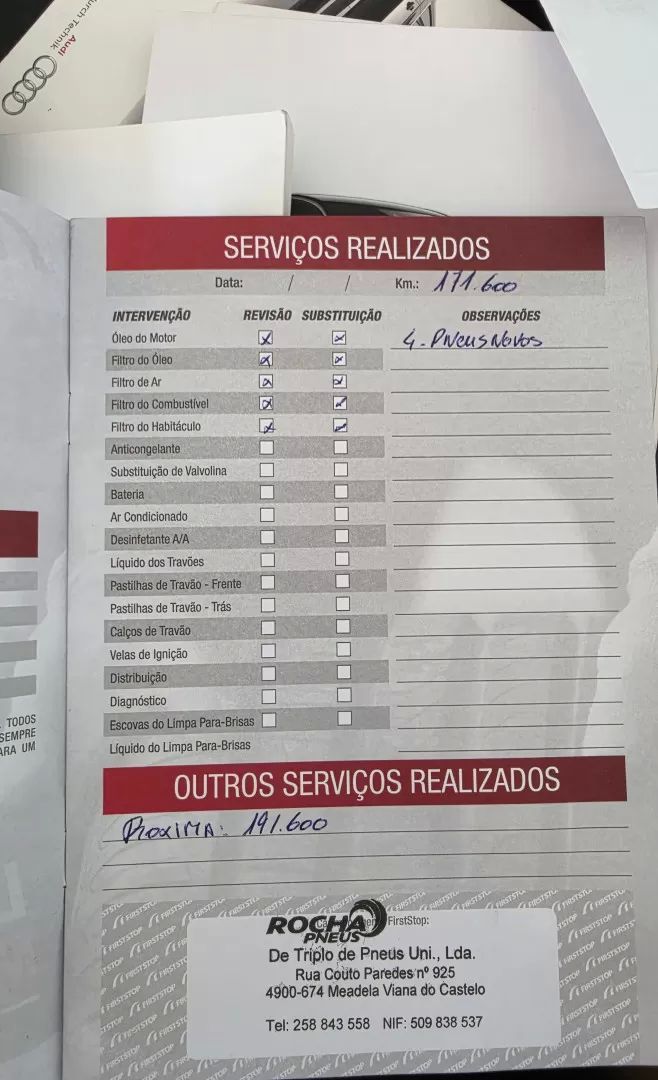 durch Technik
Audi
SERVIÇOS REALIZADOS
Data: / / Km.: 171.600
INTERVENÇÃO REVISÃO SUBSTITUIÇÃO OBSERVAÇÕES
Óleo do Motor 4 - PNEUS NOVOS
Filtro do Óleo
Filtro de Ar
Filtro do Combustível
Filtro do Habitáculo
Anticongelante
Substituição de Valvolina
Bateria
Ar Condicionado
Desinfetante A/A
Líquido dos Travões
Pastilhas de Travão - Frente
Pastilhas de Travão - Trás
Calços de Travão
Velas de Ignição
Distribuição
Diagnóstico
Escovas do Limpa Para-Brisas
Líquido do Limpa Para-Brisas
TODOS
SEMPRE
ARA UM
OUTROS SERVIÇOS REALIZADOS
PROXIMA: 191.600
FIRSTSTOP
ROCHA FirstStop:
PNEUS
De Triplo de Pneus Uni., Lda.
Rua Couto Paredes nº 925
4900-674 Meadela Viana do Castelo
Tel: 258 843 558 NIF: 509 838 537